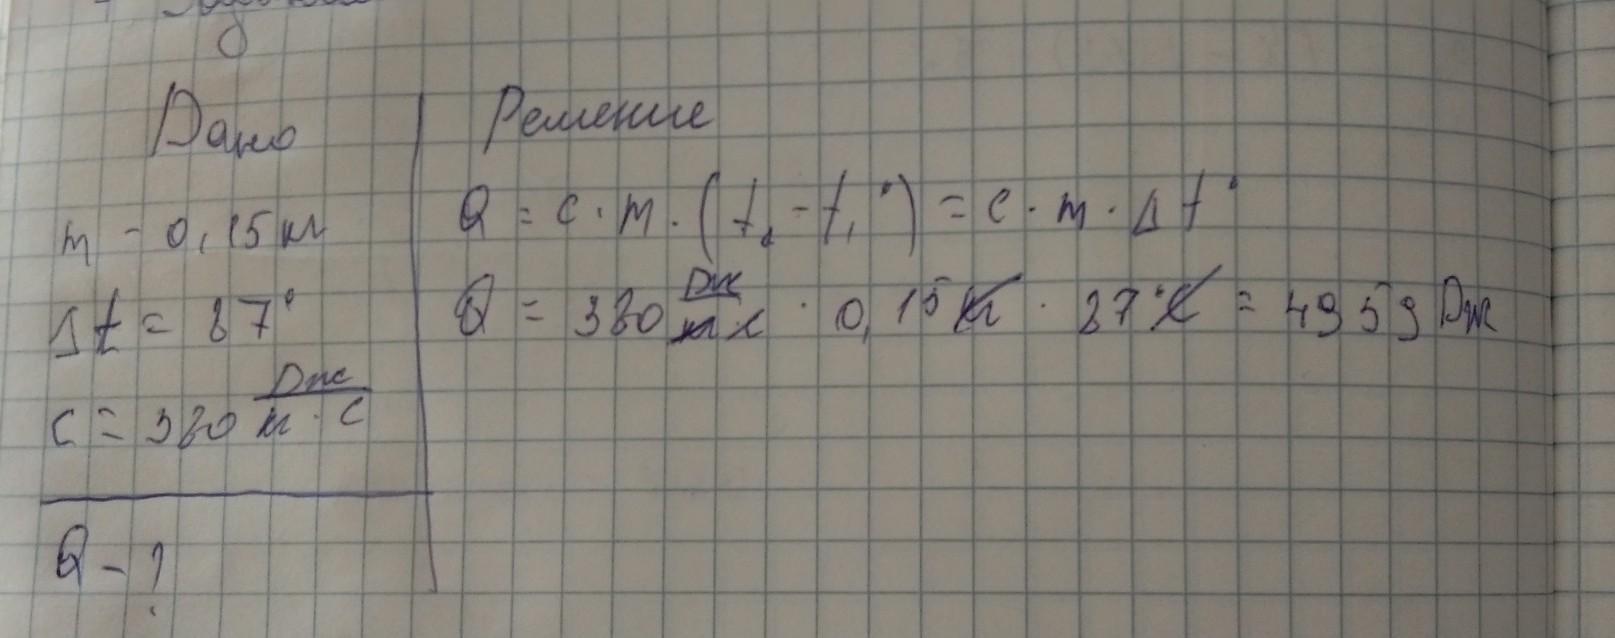 Дано
m - 0,15 кг
Δt = 87°
c = 380 Дж/кг · С
Q - ?
Решение
Q = c · m · (t₂ - t₁°) = c · m · Δt°
Q = 380 Дж/кг С · 0,15 кг · 87°С = 4959 Дж